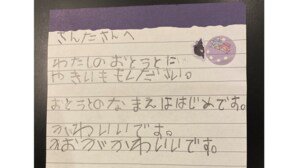 さんたさんへ
わたしのおとうとに
やきいももください。
おとうとのなまえははじめです。
かわいいです。
かおがかわいいです。